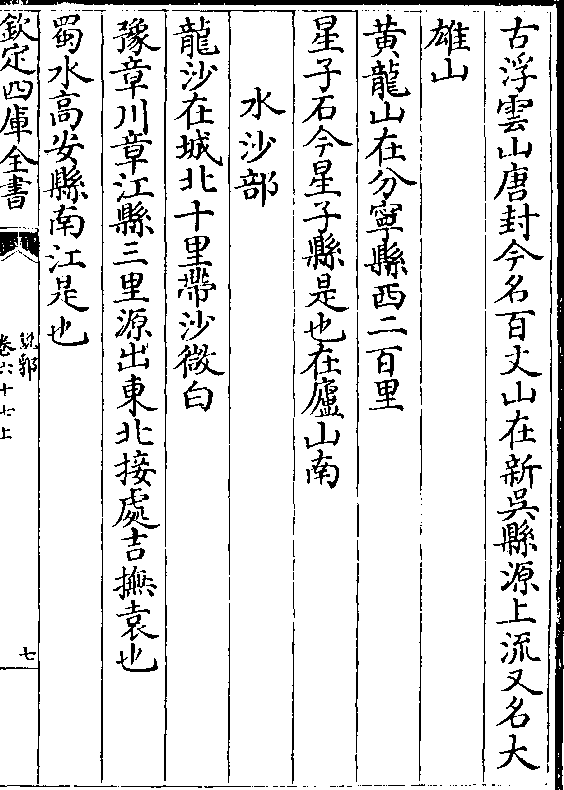 古浮雲山唐封今名百丈山在新吳縣源上流又名大
雄山
黄龍山在分寧縣西二百里
星子石今星子縣是也在廬山南
水沙部
龍沙在城北十里帶沙㣲白
豫章川章江縣三里源出東北接處吉撫袁也
蜀水高安縣南江是也
欽定四庫全書
說郛
卷六十七上
七